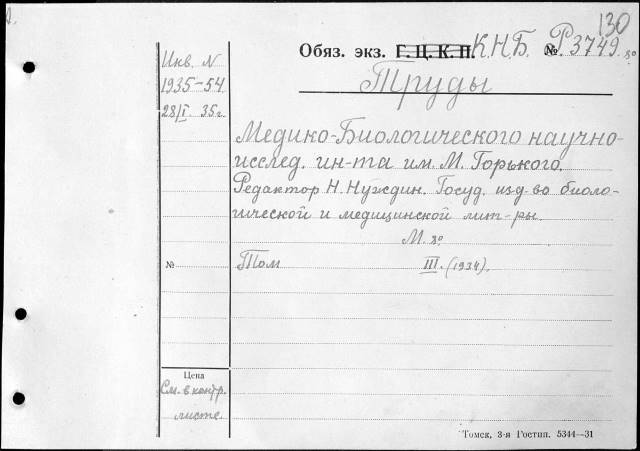 130
Обяз. экз. Г. Ц. К. П. К.Н.Б. № Р.3749. 8º
Труды
Инв. N
1935-54
28/I. 35г.
Медико-Биологического научно-
исслед. ин-та им. М. Горького.
Редактор Н. Нуждин. Госуд. изд-во биоло-
гической и медицинской лит-ры.
М. 8º
№ Том III. (1934).
Цена
См. в контр.
листе.
Томск, 3-я Гостип. 5344—31